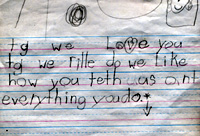 tg we Love you
tg we rille do we like
how you teth us a nt
everything you do.